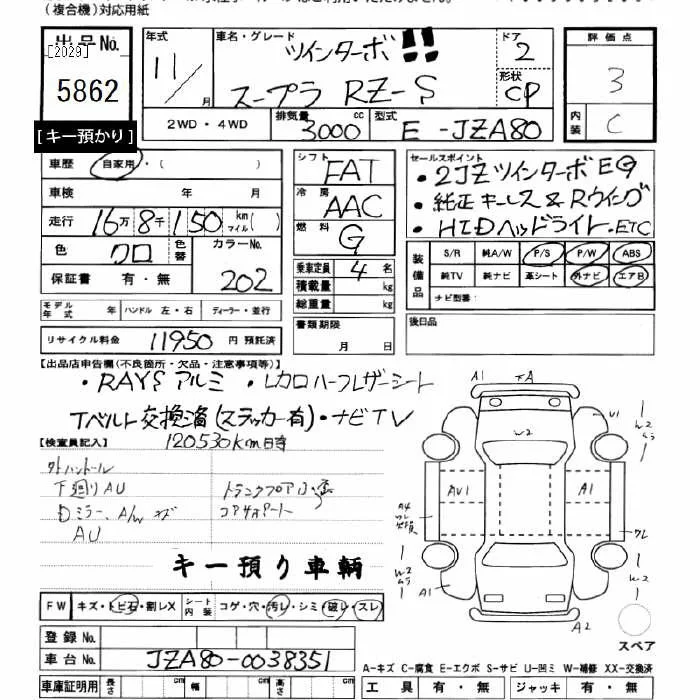 (複合機)対応用紙
出品No.
[2029]
5862
[キー預かり]
年式 11/ 月
車名・グレード ツインターボ!!
スープラ RZ-S
ドア 2
形状 CP
2WD・4WD
排気量 3000 cc
型式 E-JZA80
評価点
3
内装 C
車歴 自家用・( )
車検 年 月
走行 16万8千150 km マイル( )
色 クロ 色替 カラーNo. 202
保証書 有・無
モデル年式 年 ハンドル 左・右 ディーラー・並行
リサイクル料金 11950 円 預託済
シフト FAT
冷房 AAC
燃料 G
乗車定員 4 名
積載量 kg
総重量 kg
書類期限
月 日
セールスポイント
・2JZツインターボEG
・純正キーレス&Rウイング
・HIDヘッドライト・ETC
装備品 S/R 純A/W P/S P/W ABS
純TV 純ナビ 革シート 外ナビ エアB
ナビ型番:
後日品
【出品店申告欄(不良箇所・欠品・注意事項等)】
・RAYSアルミ ・レカロハーフレザーシート
Tベルト交換済(ステッカー有)・ナビTV
120530km時
【検査員記入】
外ハンドル
下廻りAU
Dミラー、A/wキズ
AU
コアサポート
キー預り車輌
FW キズ・トビ石・割レX シート内装 コゲ・穴・汚レ・シミ・破レ・スレ
登録No.
車台No. JZA80-0038351
車庫証明用 長さ cm 幅 cm 高さ cm
A1 FA
U1
W2
W2
AU1 A1
A4
ワレ
W2
W2
A1
A2
スペア
A-キズ C-腐食 E-エクボ S-サビ U-凹ミ W-補修 XX-交換済
工具 有・無 ジャッキ 有・無